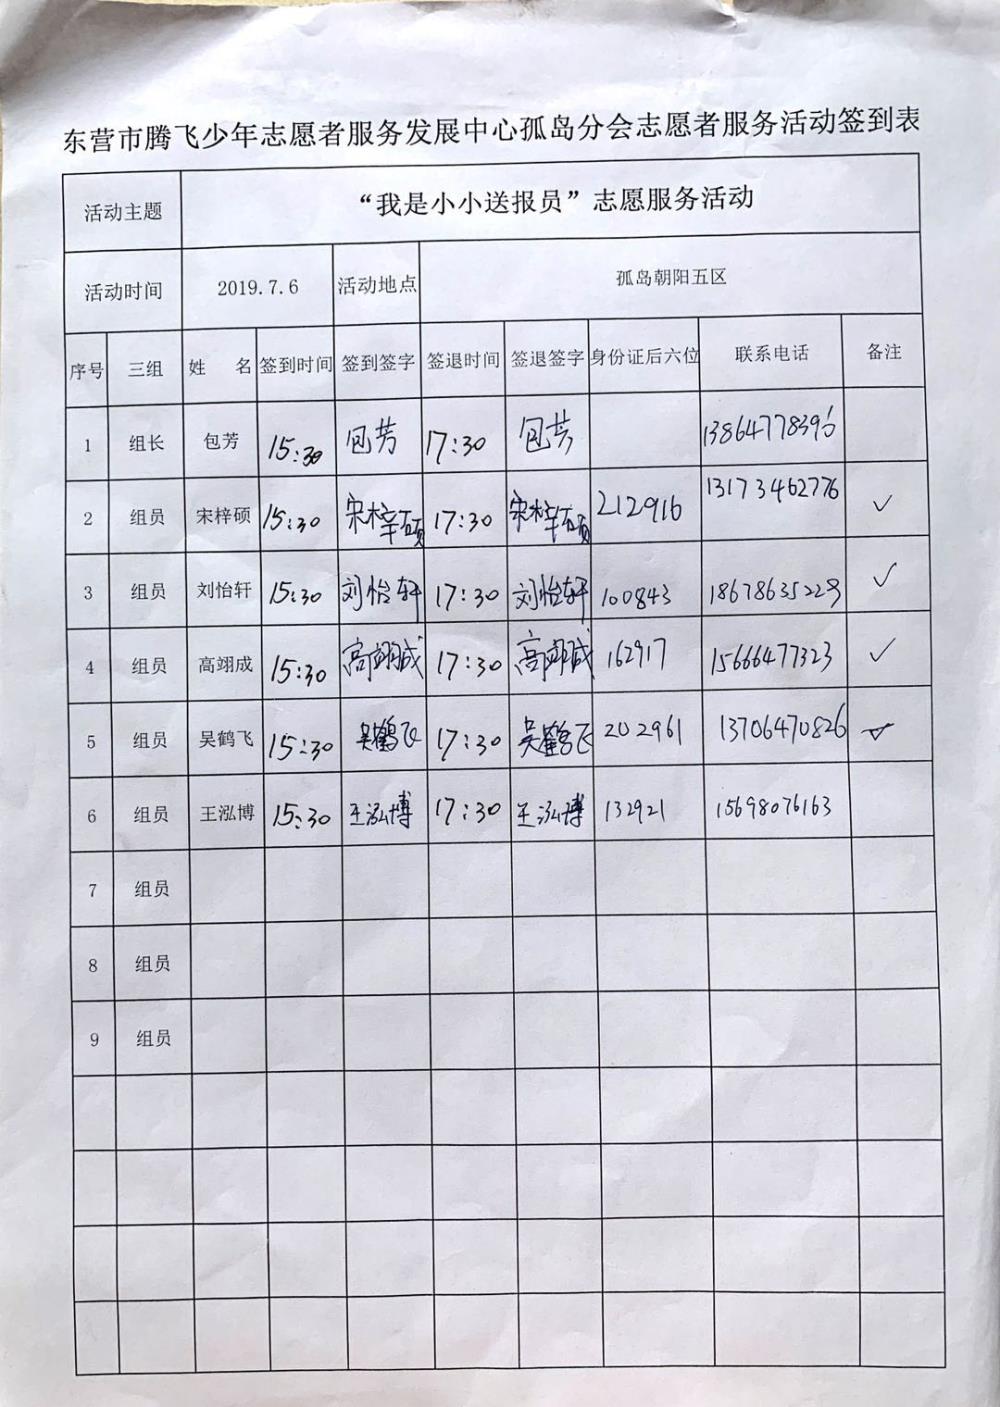 东营市腾飞少年志愿者服务发展中心孤岛分会志愿者服务活动签到表
活动主题 “我是小小送报员”志愿服务活动
活动时间 2019.7.6 活动地点 孤岛朝阳五区
序号 三组 姓 名 签到时间 签到签字 签退时间 签退签字 身份证后六位 联系电话 备注
1 组长 包芳 15:30 包芳 17:30 包芳
2 组员 宋梓硕 15:30 宋梓硕 17:30 宋梓硕 212916 13173462776 ✓
3 组员 刘怡轩 15:30 刘怡轩 17:30 刘怡轩 100843 18678635229 ✓
4 组员 高翊成 15:30 高翊成 17:30 高翊成 162917 15666477323 ✓
5 组员 吴鹤飞 15:30 吴鹤飞 17:30 吴鹤飞 202961 13706470826 ✓
6 组员 王泓博 15:30 王泓博 17:30 王泓博 132921 15698076163
7 组员
8 组员
9 组员